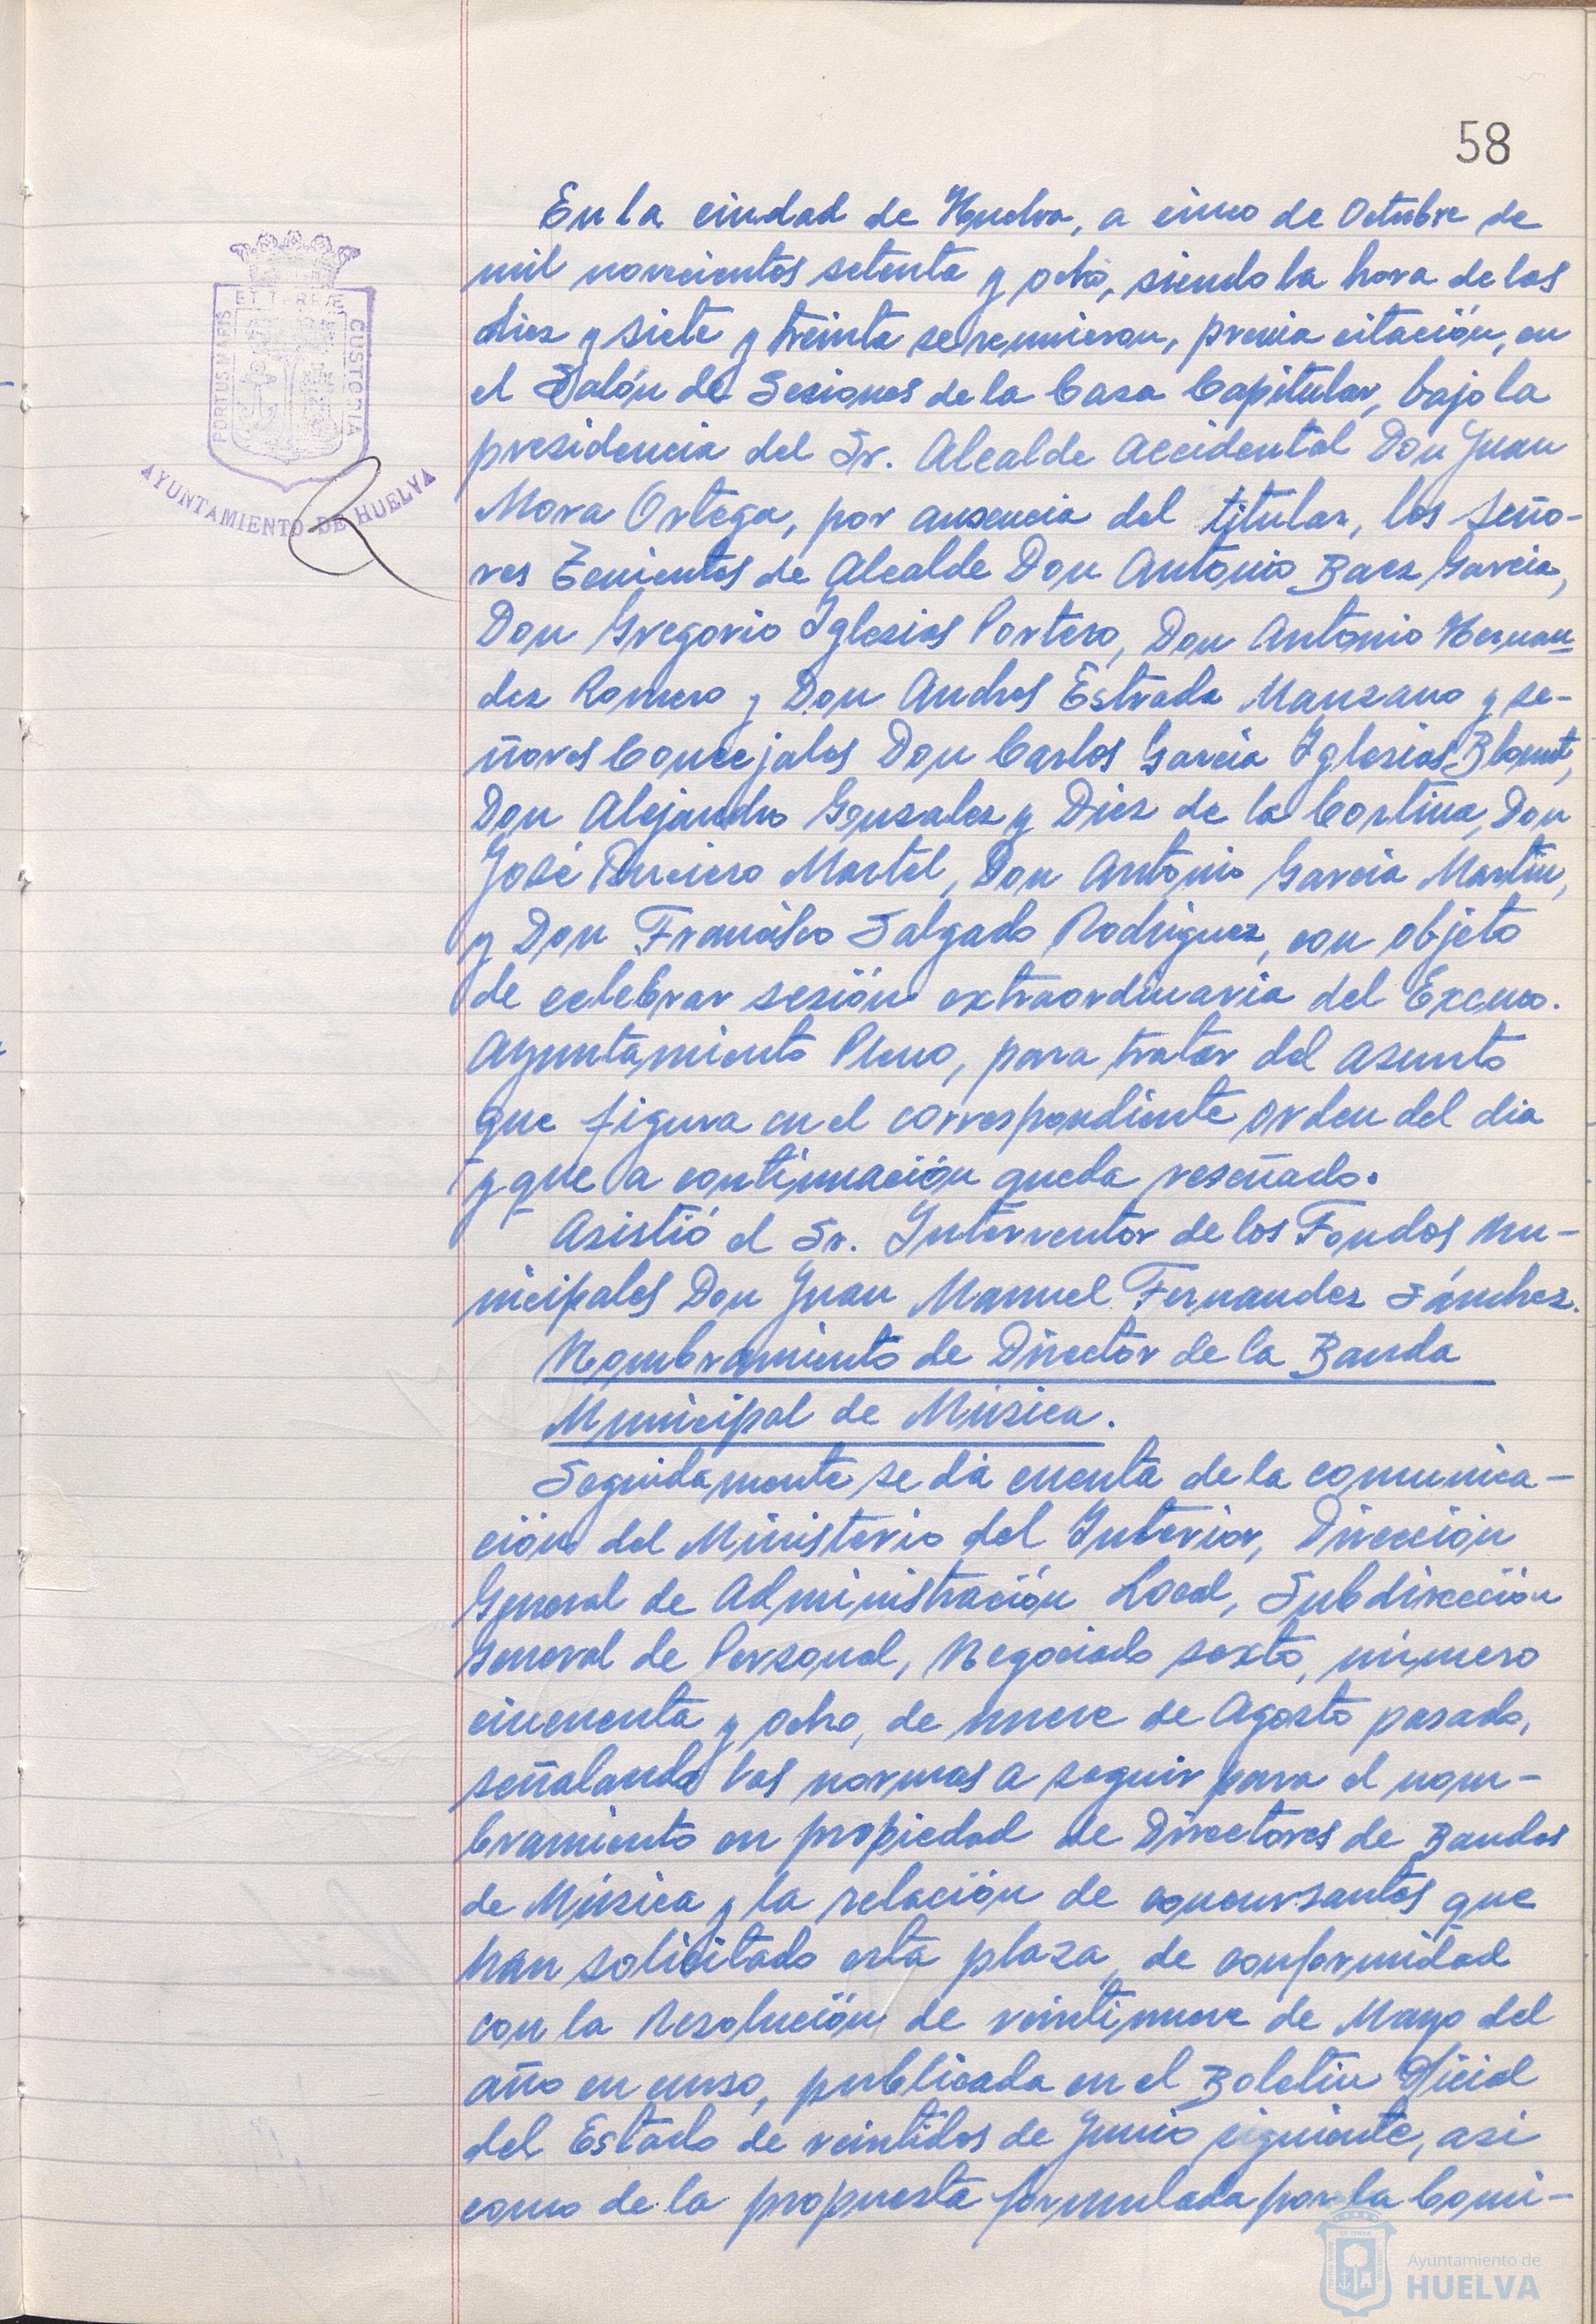 58
En la ciudad de Huelva, a cinco de Octubre de
mil novecientos setenta y ocho, siendo la hora de las
diez y siete y treinta se reunieron, previa citación, en
el Salón de Sesiones de la Casa Capitular, bajo la
presidencia del Sr. Alcalde Accidental Don Juan
Mora Ortega, por ausencia del titular, los seño-
res Tenientes de Alcalde Don Antonio Baez Garcia,
Don Gregorio Iglesias Portero, Don Antonio Hernan-
dez Romero y Don Andres Estrada Manzano y se-
ñores Concejales Don Carlos Garcia Iglesias Blount,
Don Alejandro Gonzalez y Diez de la Cortina, Don
José Martel, Don Antonio Garcia Martin,
y Don Francisco Salgado Rodriguez, con objeto
de celebrar sesión extraordinaria del Excmo.
Ayuntamiento Pleno, para tratar del asunto
que figura en el correspondiente orden del dia
y que a continuación queda reseñado.
Asistió el Sr. Interventor de los Fondos Mu-
nicipales Don Juan Manuel Fernandez Sánchez.
Nombramiento de Director de la Banda
Municipal de Música.
Seguidamente se dá cuenta de la comunica-
ción del Ministerio del Interior, Dirección
General de Administración Local, Subdirección
General de Personal, Negociado sexto, número
cincuenta y ocho, de nueve de Agosto pasado,
señalando las normas a seguir para el nom-
bramiento en propiedad de Directores de Bandas
de Música y la relación de concursantes que
han solicitado esta plaza, de conformidad
con la Resolución de veintinueve de Mayo del
año en curso, publicada en el Boletin Oficial
del Estado de veintidos de Junio siguiente, asi
como de la propuesta formulada por la Comi-
ET TERRÆ
PORTUS MARIS
CUSTODIA
AYUNTAMIENTO DE HUELVA
Ayuntamiento de
HUELVA